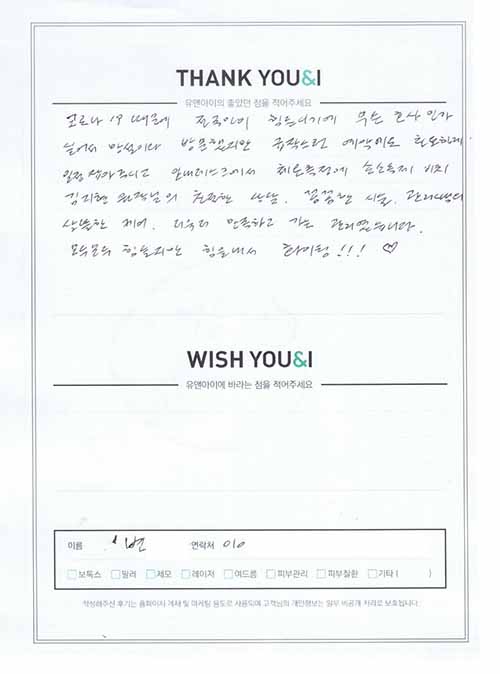 THANK YOU&I
유앤아이의 좋았던 점을 적어주세요
코로나 19 때문에 전국민이 힘든시기에 무슨 호사인가
싶어서 망설이다 방문했지만 갑작스런 예약에도 친절하게
일정 잡아주시고 안내데스크에서 체온측정에 손소독제 비치
김지현 원장님의 친절한 상담. 꼼꼼한 시술. 관리사님의
산뜻한 케어. 더욱더 만족하고 가는 관리였습니다.
모두모두 힘들지만 힘을내서 화이팅!!! ♡
WISH YOU&I
유앤아이에 바라는 점을 적어주세요
이름 연락처 010
보톡스 필러 제모 레이저 여드름 피부관리 피부질환 기타 ( )
작성해주신 후기는 홈페이지 게재 및 마케팅 용도로 사용되며 고객님의 개인정보는 일부 비공개 처리로 보호됩니다.